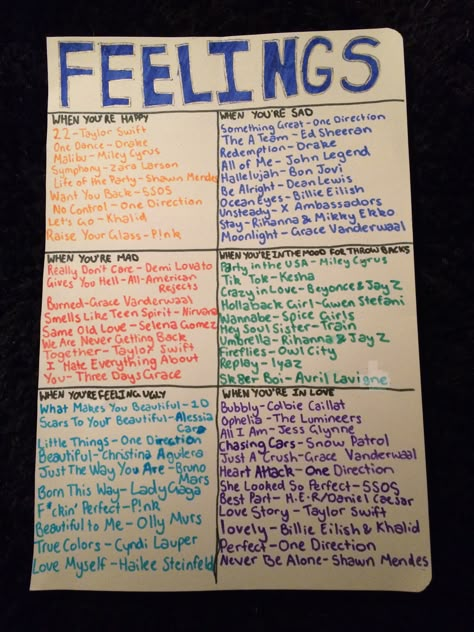 FEELINGS
WHEN YOU'RE HAPPY
22-Taylor Swift
One Dance-Drake
Malibu-Miley Cyrus
Symphony-Zara Larson
Life of the Party-Shawn Mendes
Want You Back-5SOS
No Control-One Direction
Let's Go-Khalid
Raise Your Glass-P!nk
WHEN YOU'RE SAD
Something Great-One Direction
The A Team-Ed Sheeran
Redemption-Drake
All of Me-John Legend
Hallelujah-Bon Jovi
Be Alright-Dean Lewis
Ocean Eyes-Billie Eilish
Unsteady-X Ambassadors
Stay-Rihanna & Mikky Ekko
Moonlight-Grace Vanderwaal
WHEN YOU'RE MAD
Really Don't Care-Demi Lovato
Gives You Hell-All-American
Rejects
Burned-Grace Vanderwaal
Smells Like Teen Spirit-Nirvana
Same Old Love-Selena Gomez
We Are Never Getting Back
Together-Taylor Swift
I Hate Everything About
You-Three Days Grace
WHEN YOU'RE IN THE MOOD FOR THROWBACKS
Party in the USA-Miley Cyrus
Tik Tok-Kesha
Crazy in Love-Beyonce & Jay Z
Hollaback Girl-Gwen Stefani
Wannabe-Spice Girls
Hey Soul Sister-Train
Umbrella-Rihanna & Jay Z
Fireflies-Owl City
Replay-Iyaz
Sk8er Boi-Avril Lavigne
WHEN YOU'RE FEELING UGLY
What Makes You Beautiful-1D
Scars To Your Beautiful-Alessia
Cara
Little Things-One Direction
Beautiful-Christina Aguilera
Just The Way You Are-Bruno
Mars
Born This Way-Lady Gaga
F*ckin' Perfect-P!nk
Beautiful to Me-Olly Murs
True Colors-Cyndi Lauper
Love Myself-Hailee Steinfeld
WHEN YOU'RE IN LOVE
Bubbly-Colbie Caillat
Ophelia-The Lumineers
All I Am-Jess Glynne
Chasing Cars-Snow Patrol
Just A Crush-Grace Vanderwaal
Heart Attack-One Direction
She Looked So Perfect-5SOS
Best Part-H.E.R/Daniel Caesar
Love Story-Taylor Swift
lovely-Billie Eilish & Khalid
Perfect-One Direction
Never Be Alone-Shawn Mendes